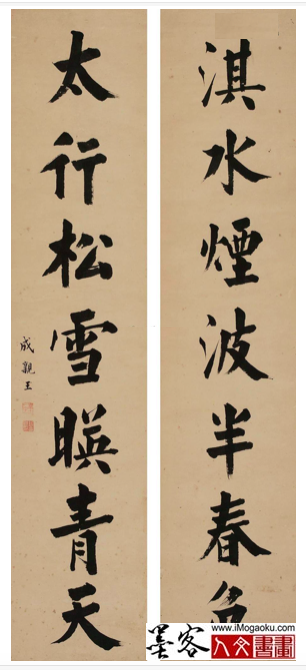 淇水煙波半春色
太行松雪暎青天
成親王
www.iMogaoku.com
墨客
人文書畫